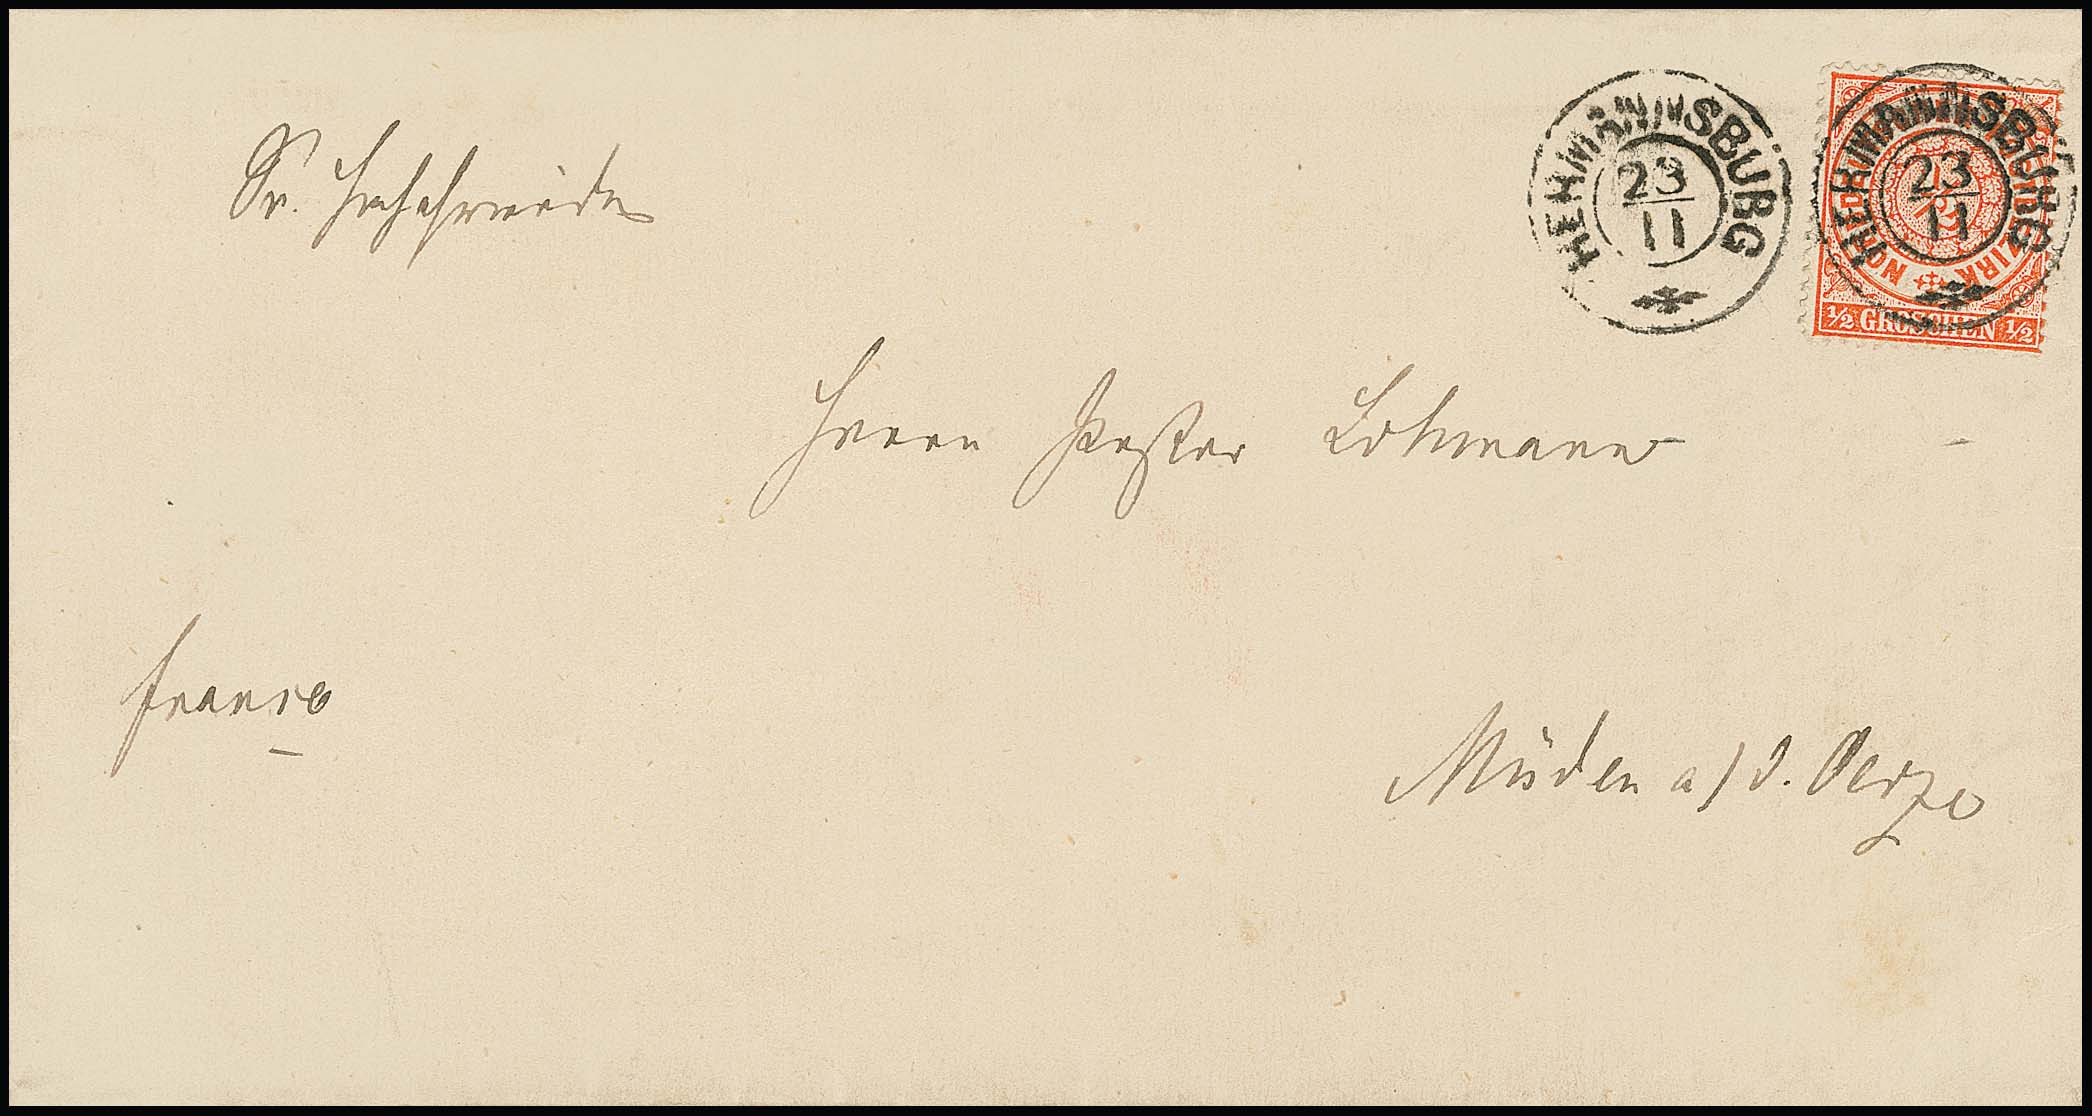 HERMANNSBURG
23
11
HERMANNSBURG
23
11
NORDD. POSTBEZIRK
1/2
1/2 GROSCHEN 1/2
Sr. Hochehrwürden
Herrn Pastor Lohmann
franco
Müden a/d. Oerze